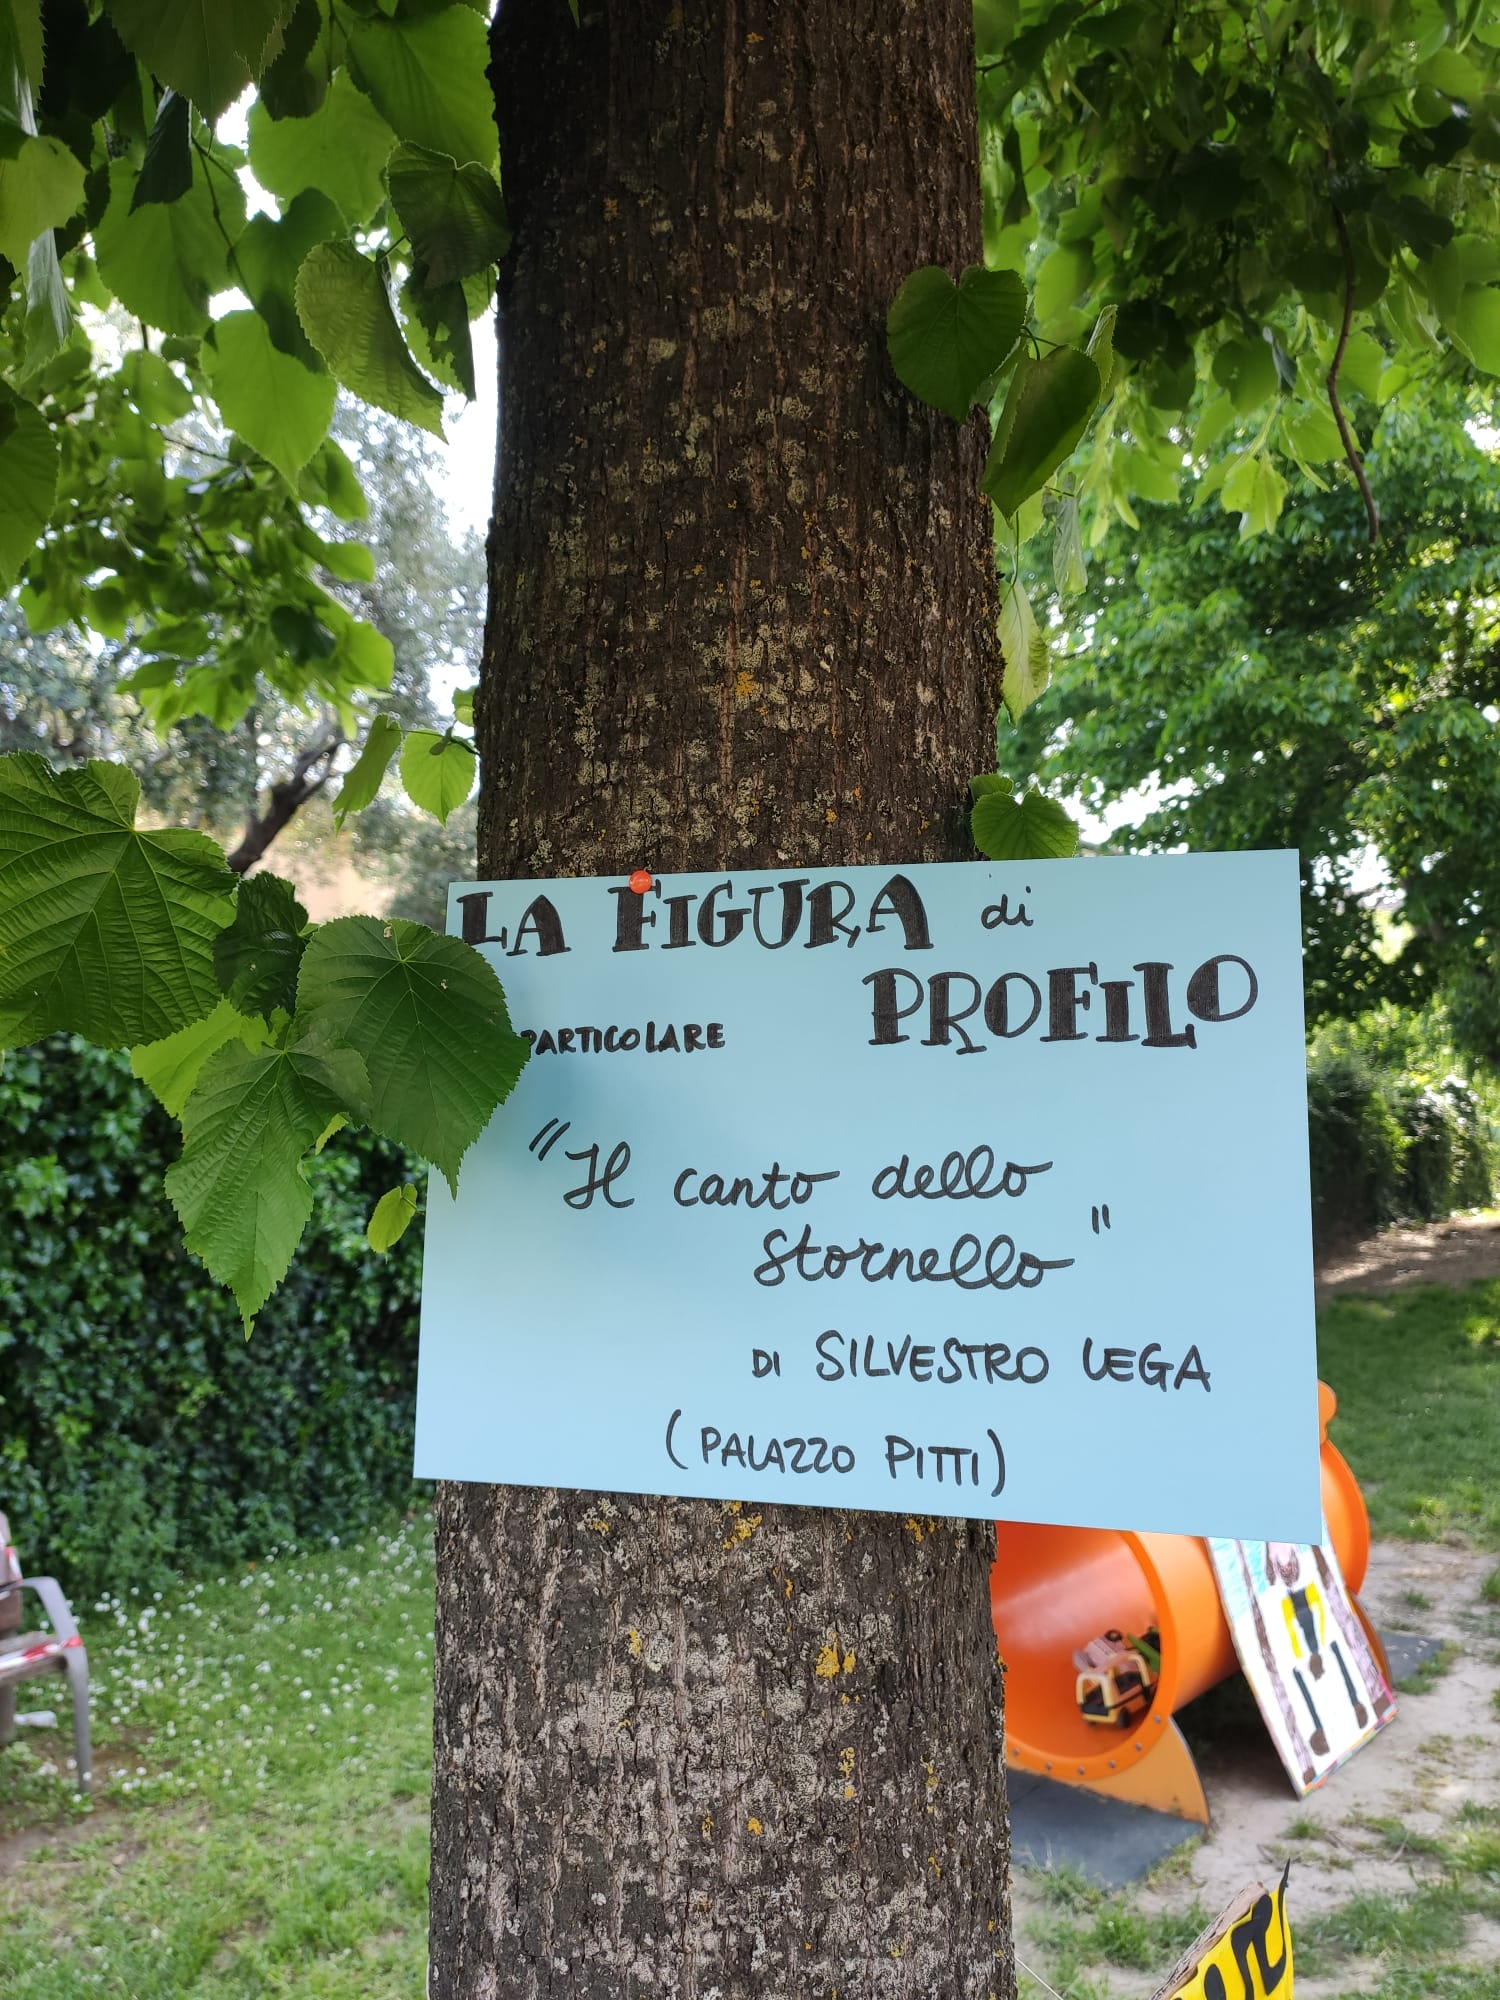 LA FIGURA di
PROFILO
PARTICOLARE
"Il canto dello
stornello"
DI SILVESTRO LEGA
(PALAZZO PITTI)